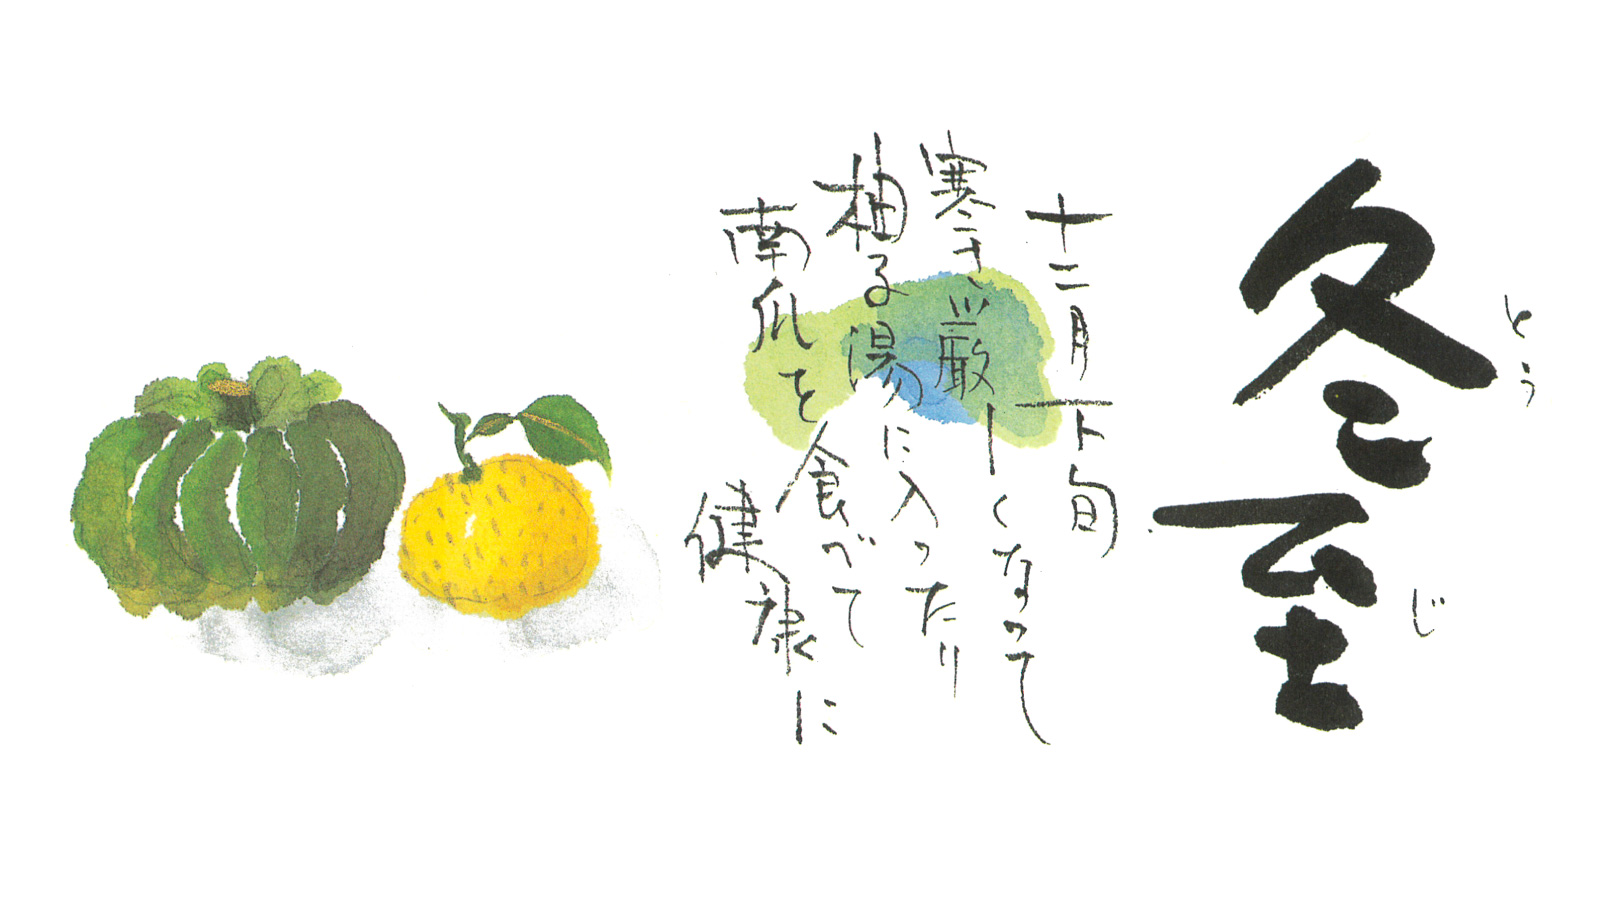 冬至
とうじ
十二月下旬
寒さ厳しくなって
柚る湯に入ったり
南瓜を食べて
健康に